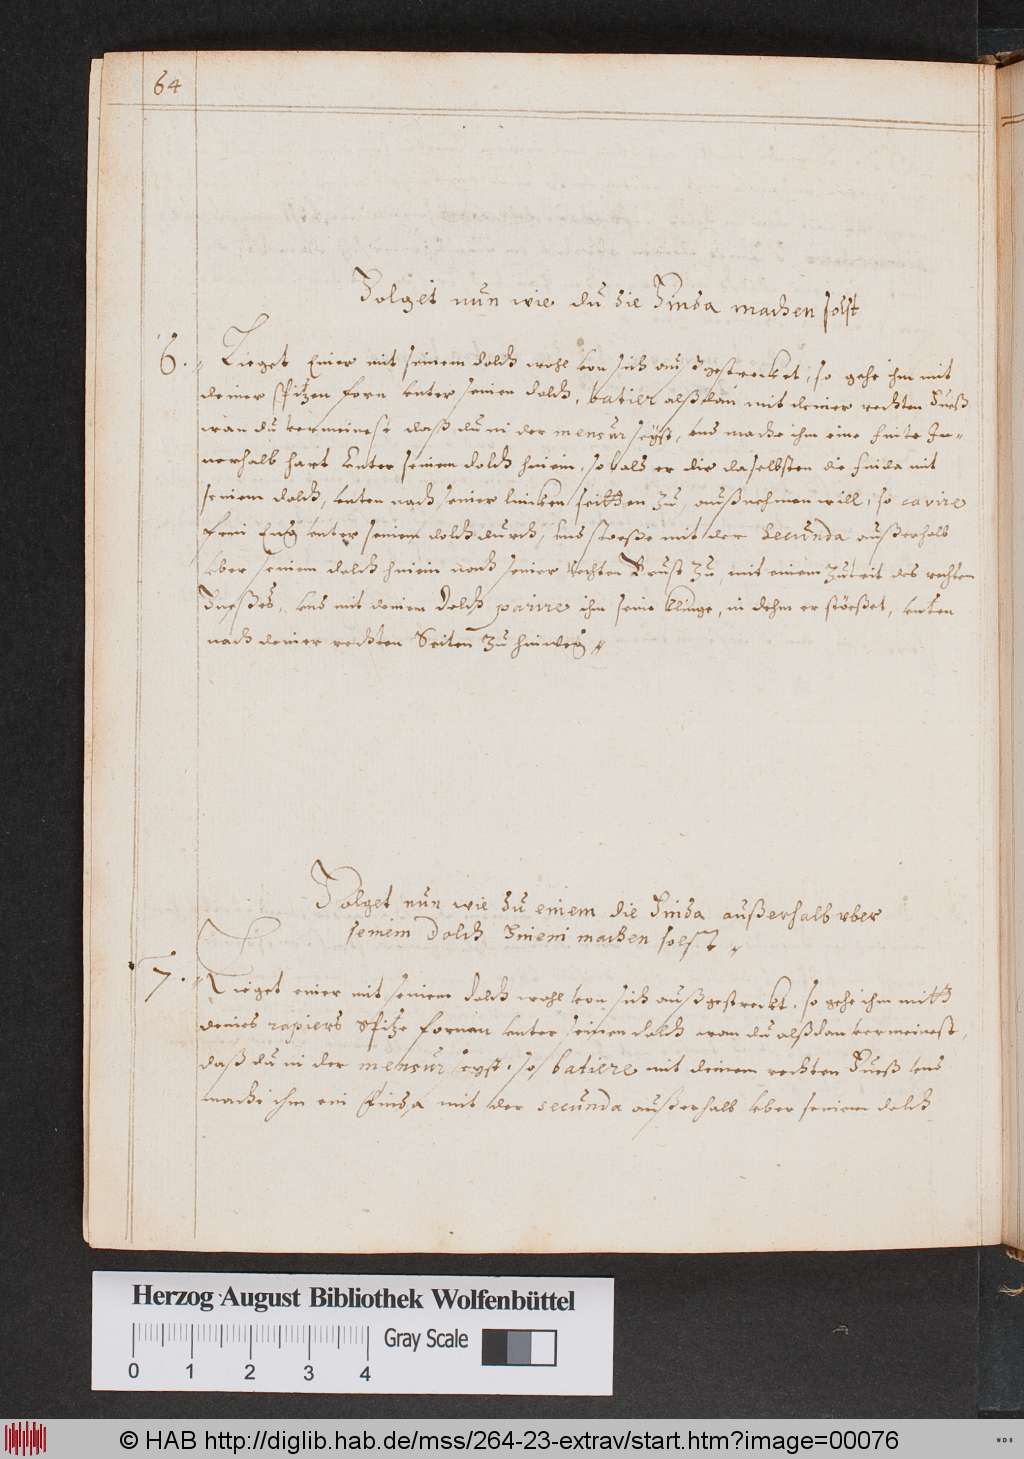 64
Folget nun wie du die Finda machen solst
6. Lieget Einer mit seinem dolch wohl von sich auß gestrecket, so gehe ihm mit
deiner spitzen forn unter seinen dolch, batier alßdan mit deiner rechten Fueß
wan du vermeinest daß du in der mensur seyst, und mache ihm eine finte In-
nerhalb hart unter seinem dolch hinein, so bald er dir daselbsten die finda mit
seinem dolch, unten nach seiner lincken seitten zu, außnehmen will, so cavire
fein Eng unter seinem dolch durch, und stoeße mit der Secunda außerhalb
uber seinem dolch hinein nach seiner rechten Brust zu, mit einem zutrit des rechten
Fueßes, und mit deinem dolch parire ihm seine klinge, in dehm er stöeßet, unten
nach deiner rechten Seiten zu hinweg
Folget nun wie du einem die Finda außerhalb uber
seinem dolch hinein machen solst
7. Lieget einer mit seinem dolch wohl von sich außgestreckt, so gehe ihm mitt
deines rapiers Spitze fornen unter seinen dolch wan du alßdan vermeinest,
daß du in der mensur seyst, so batiere mit deinem rechten Fueß und
mache ihm ein finda mit der secunda außerhalb uber seinem dolch
Herzog August Bibliothek Wolfenbüttel
Gray Scale
0 1 2 3 4
© HAB http://diglib.hab.de/mss/264-23-extrav/start.htm?image=00076